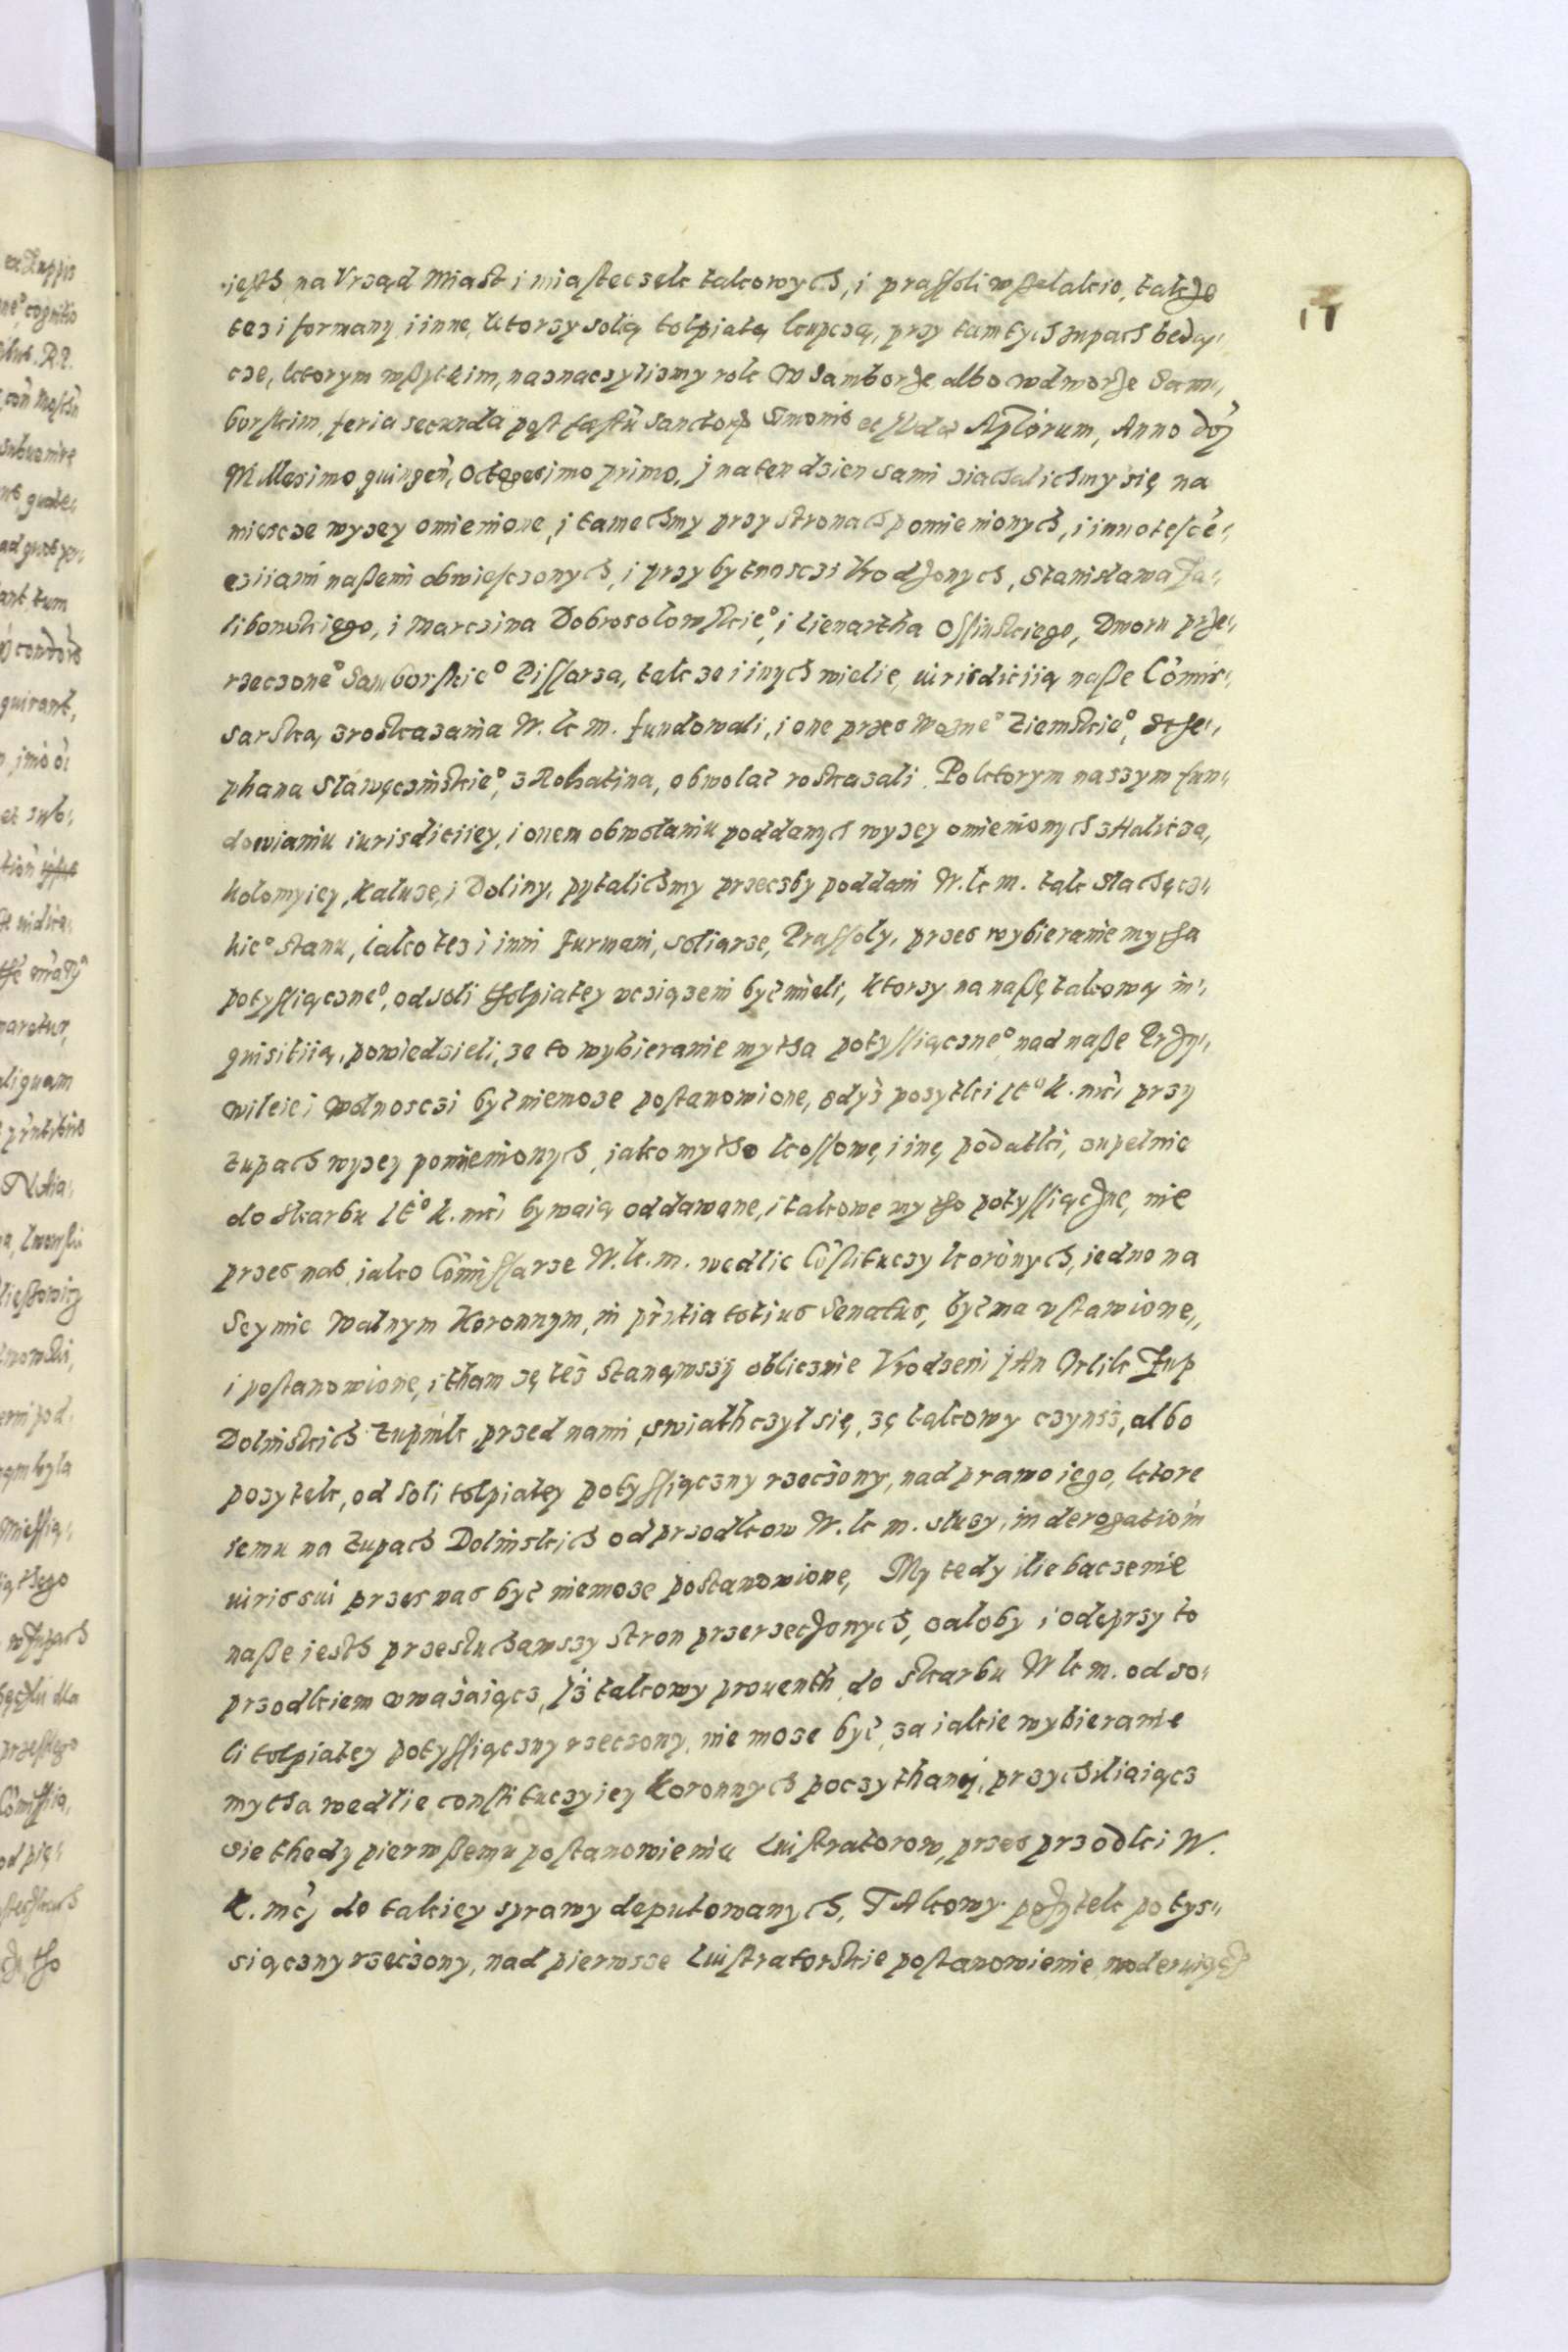 17
iesth na Vrząd Miast i miasteczek takowych, i prassoli wßelakie, takze
tez i formany i inne, ktorzy solią tolpiatą kupczą, przy tamtych zupach bedą„
cze, ktorym wßytkim, naznaczylismy rok w Samborze albo wdworze Sam„
borskim, feria secunda post festũ Sanctorũ Simonis et Iudæ Aplorum, Anno Dnj
Millesimo quingeñ, Octogesimo primo, j naten dzien sami ziachalichmy się na
mieiscze wyzey omienione, i tamechmy przy stronach pomienionych, i innotesce„
cziiami naßemi obwiesczonych, i przy bytnosczi Vrodzonych, Stanisława Za„
libowskiego, i Marczina Dobrosołowskieº, i Lienartha Ossinskiego, Dworu prze„
rzeczoneº Samborskieº Pissarza, tak ze i inych wielie, iurisdictiią naße Cõmis„
sarską, z roskazania W. k m. fundowali, i one przes Wozneº Ziemskieº, Ste„
phana Sławęczinskieº, z Rohatina, obwolać roskazali. Po ktorym naszym fun„
dowianiu iurisdictiiey, i onem obwołaniu poddanych wyzey omienionych z Halicza,
Kolomyiey, Kałuze, i Doliny, pytalichmy przeczby poddani W. k m. tak Slachęcz„
kieº stanu, iako tez i inni furmani, soliarze, Prassoly, przes wybieranie mytha
potyssiączneº, od soli tholpiatey vcziązeni być mieli, ktorzy na naßę takową in„
quisitiią, powiedzieli, ze to wybieranie mytha potyssiączneº nad naße Przy„
wileie i wolnosczi być niemoze postanowione, gdyż pozytki Iᵉº K. mći przy
żupach wyzey pomienionych, iako mytho kossowe, i inę podatki, zupełnie
do skarbu Iᵉº K. mći bywaią oddawane, i takowe mytho potyssiączne, nie
przes nas, iako Cõmissarze W. k. m. wedlie Cõstituczy koronych, iedno na
Seymie Walnym Koronnym, in pñtia totius Senatus, być ma vstawione„
i postanowione, i tham zę też stanąwszy oblicznie Vrodzeni jAn Orlik Zup
Dolinskich Żupnik, przed nami, swiathczył się, zę takowy czynsz, albo
pozytek, od soli tolpiatey potyssiączny rzeczony, nad prawo iego, ktore
iemu na żupach Dolinskich od przodkow W. k m. słuzy, in derogationẽ
iuris sui przes nas być niemoze postanowione, My tedy ilie baczenie
naße iesth przesłuchawszy stron przerzeczonych, załoby i odeprzy to
przodkiem vważaiącz, Iż takowy prouenth do skarbu W k m. od so„
li tolpiatey potyssiączny rzeczony, nie moze być, za iakie wybieranie
mytha wedlie constituczyiey Koronnych poczythany, przychiliaiącz
sie thedy pierwßemu postanowieniu Luistratorow, przes przodki W.
K. mćj do takiey sprawy deputowanych, TAkowy pozytek potys„
siączny rzeczony, nad pierwsze Luistratorskie postanowienie